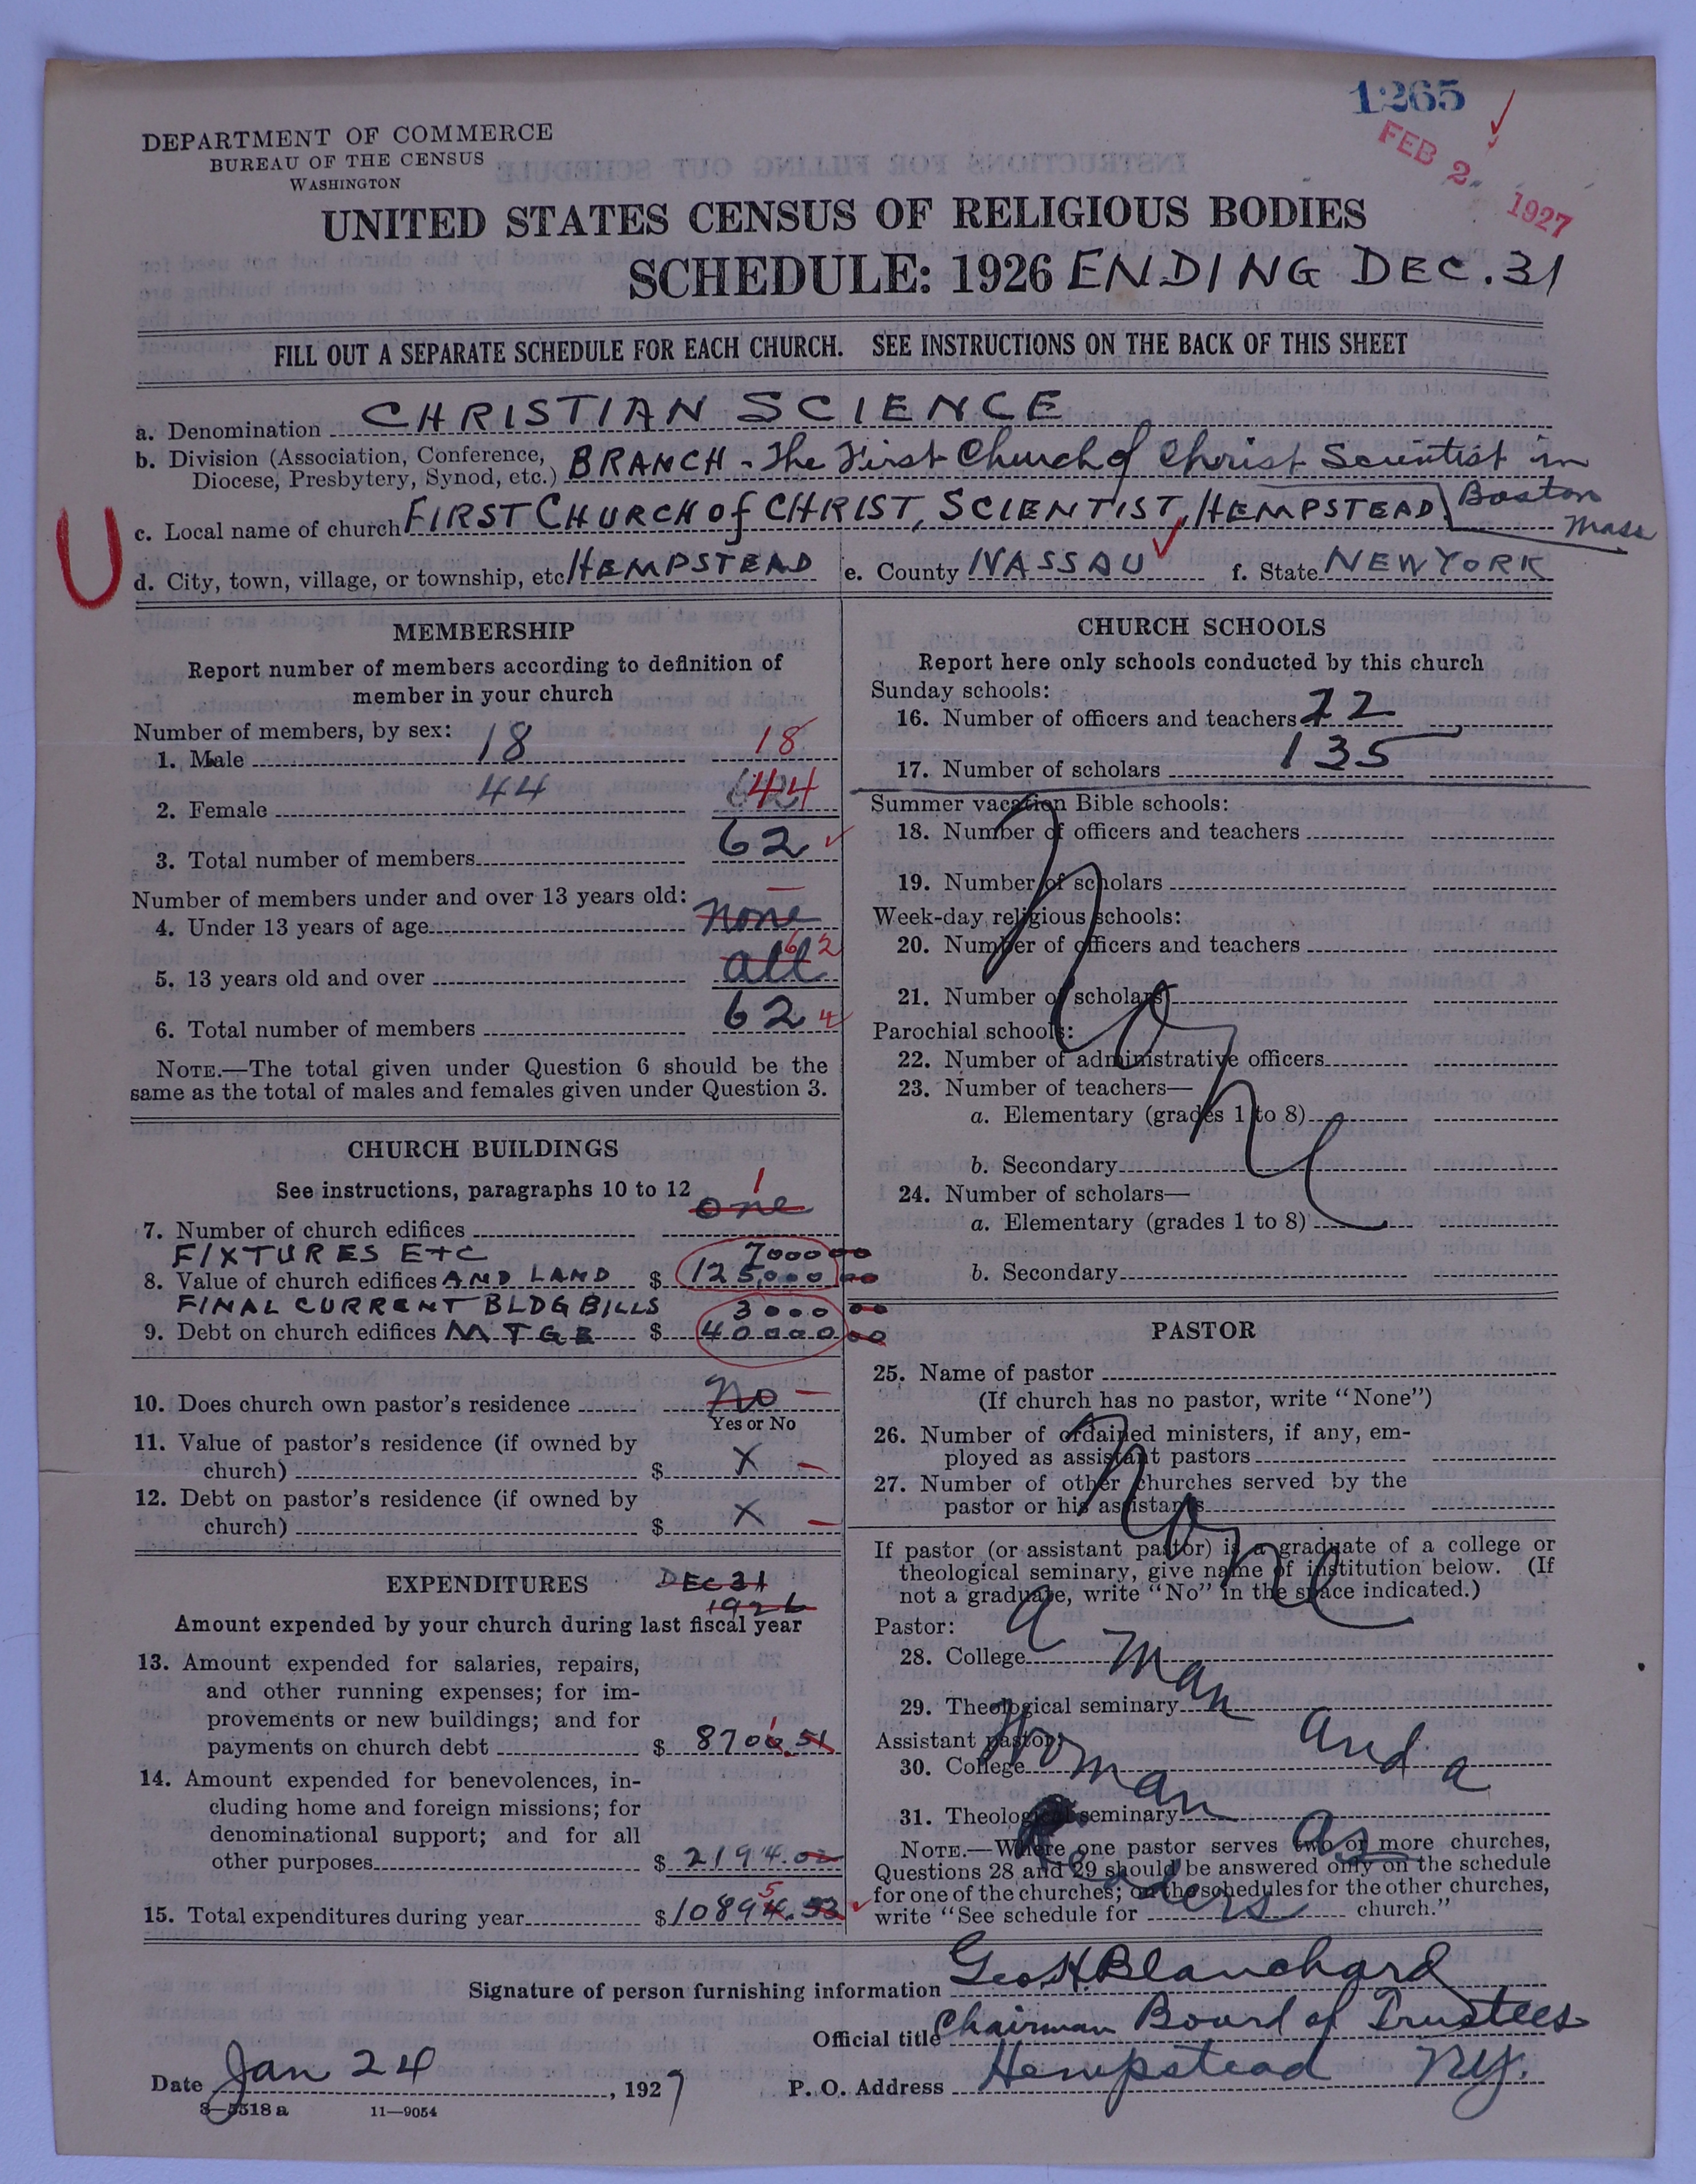 1265
FEB 2 1927
DEPARTMENT OF COMMERCE
BUREAU OF THE CENSUS
WASHINGTON
UNITED STATES CENSUS OF RELIGIOUS BODIES
SCHEDULE: 1926 ENDING DEC. 31
FILL OUT A SEPARATE SCHEDULE FOR EACH CHURCH. SEE INSTRUCTIONS ON THE BACK OF THIS SHEET
a. Denomination CHRISTIAN SCIENCE
b. Division (Association, Conference, Diocese, Presbytery, Synod, etc.) BRANCH - The First Church of Christ Scientist in Boston Mass
U
c. Local name of church FIRST CHURCH of CHRIST, SCIENTIST, HEMPSTEAD
d. City, town, village, or township, etc HEMPSTEAD e. County NASSAU f. State NEW YORK
MEMBERSHIP
Report number of members according to definition of
member in your church
Number of members, by sex:
1. Male 18 18
2. Female 44 44
3. Total number of members 62
Number of members under and over 13 years old:
4. Under 13 years of age none
5. 13 years old and over all 62
6. Total number of members 62
NOTE.—The total given under Question 6 should be the
same as the total of males and females given under Question 3.
CHURCH BUILDINGS
See instructions, paragraphs 10 to 12
7. Number of church edifices one 1
FIXTURES ETC 7000 00
8. Value of church edifices AND LAND $ 125,000 00
FINAL CURRENT BLDG BILLS 3000 00
9. Debt on church edifices MTGE $ 40000 00
10. Does church own pastor's residence No
Yes or No
11. Value of pastor's residence (if owned by
church) $ X
12. Debt on pastor's residence (if owned by
church) $ X
EXPENDITURES DEC 31
1926
Amount expended by your church during last fiscal year
13. Amount expended for salaries, repairs,
and other running expenses; for im-
provements or new buildings; and for
payments on church debt $ 8700.51
14. Amount expended for benevolences, in-
cluding home and foreign missions; for
denominational support; and for all
other purposes $ 2194.02
15. Total expenditures during year $ 10894.53 5
CHURCH SCHOOLS
Report here only schools conducted by this church
Sunday schools:
16. Number of officers and teachers 22
17. Number of scholars 135
Summer vacation Bible schools:
18. Number of officers and teachers
19. Number of scholars
Week-day religious schools:
20. Number of officers and teachers
21. Number of scholars
Parochial schools:
22. Number of administrative officers
23. Number of teachers—
a. Elementary (grades 1 to 8)
b. Secondary
24. Number of scholars—
a. Elementary (grades 1 to 8)
b. Secondary
None
PASTOR
25. Name of pastor
(If church has no pastor, write "None")
26. Number of ordained ministers, if any, em-
ployed as assistant pastors
27. Number of other churches served by the
pastor or his assistants
None
If pastor (or assistant pastor) is a graduate of a college or
theological seminary, give name of institution below. (If
not a graduate, write "No" in the space indicated.)
Pastor:
28. College
29. Theological seminary
Assistant pastor:
30. College
31. Theological seminary
a man and a
woman as
Readers
NOTE.—Where one pastor serves two or more churches,
Questions 28 and 29 should be answered only on the schedule
for one of the churches; on the schedules for the other churches,
write "See schedule for church."
Signature of person furnishing information Geo H Blanchard
Official title Chairman Board of Trustees
Date Jan 24, 1927 P. O. Address Hempstead N.Y.
8—5518 a 11—9054